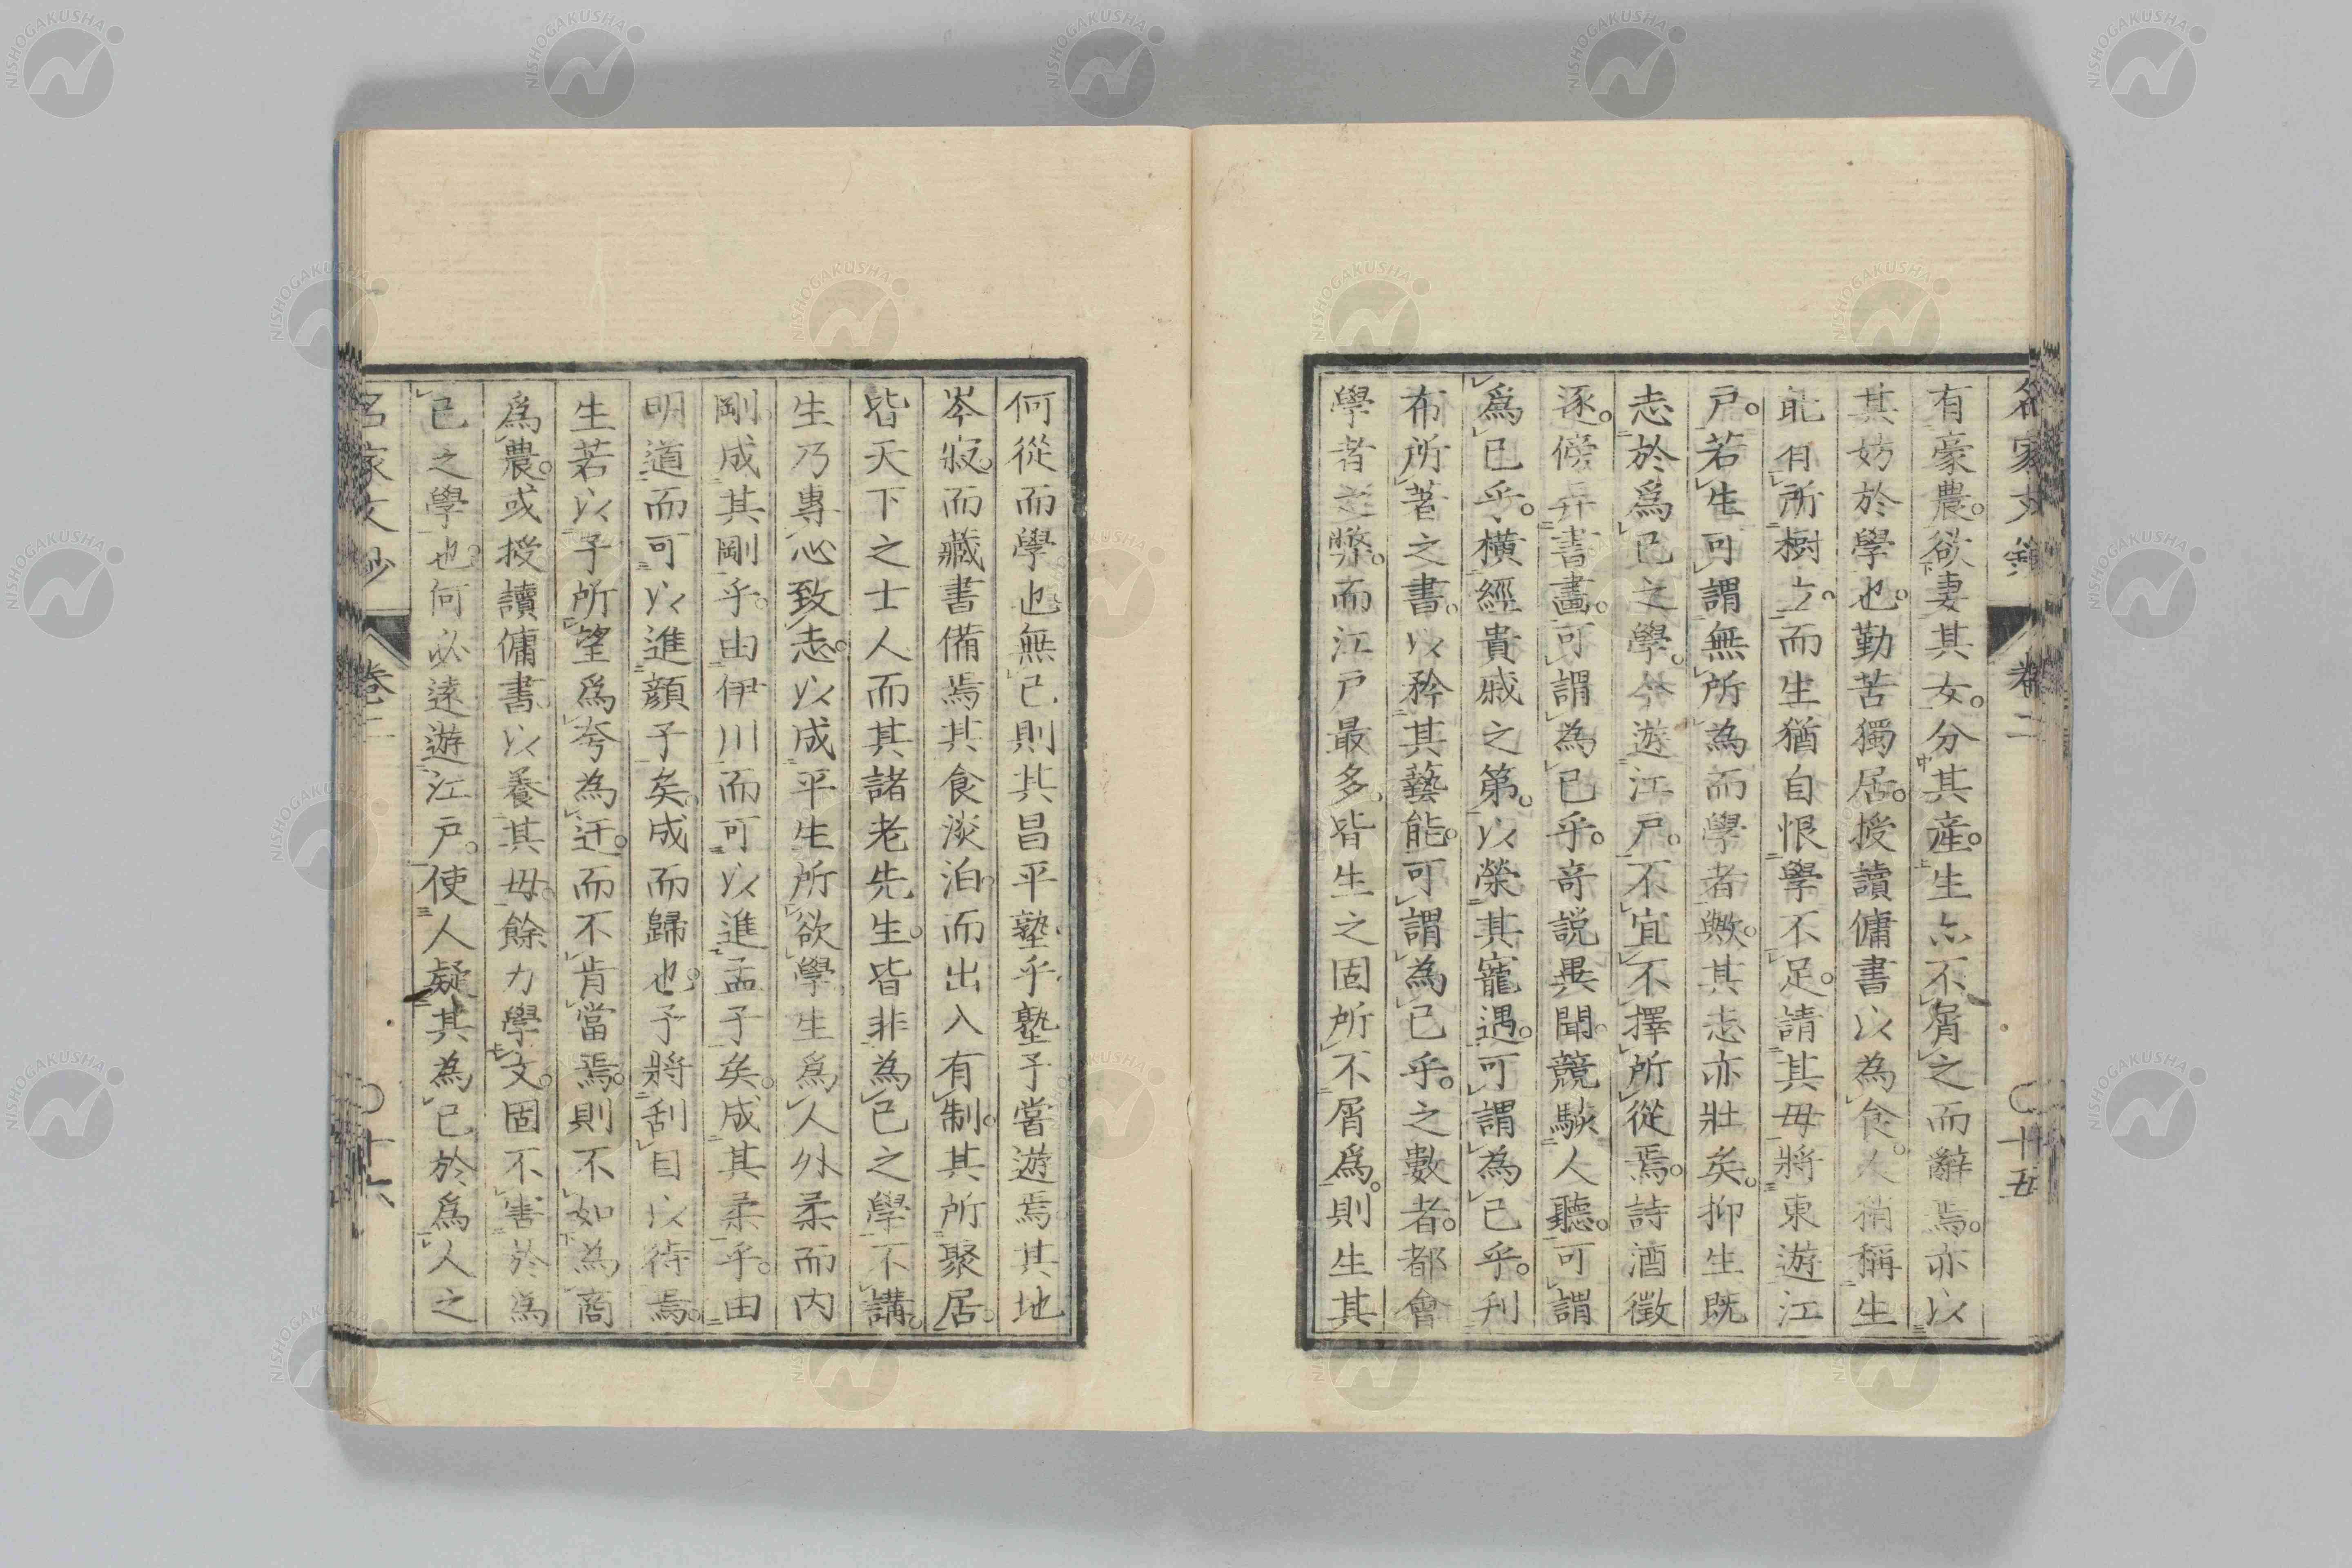 名家文鈔 卷二 〇十五
有豪農。欲妻其女。分其產。生亦不屑之而辭焉。亦以
其妨於學也。勤苦獨居。授讀傭書以為食。人稍稱生
能有所樹立。而生猶自恨學不足。請其母將東遊江
戶。若生可謂無所為而學者歟。其志亦壯矣。抑生既
志於爲己之學。今遊江戶。不宜不擇所從焉。詩酒徵
逐。傍弄書畫。可謂為己乎。奇説異聞。競駭人聽。可謂
爲己乎。橫經貴戚之第。以榮其寵遇。可謂為己乎。刊
布所著之書。以矜其藝能。可謂為己乎。之數者。都會
學者之弊。而江戶最多。皆生之固所不屑爲。則生其
何從而學也無已則其昌平塾乎塾予嘗遊焉其地
岑寂。而藏書備焉其食淡泊。而出入有制。其所聚居。
皆天下之士人而其諸老先生。皆非為己之學不講。
生乃專心致志。以成平生所欲學生爲人外柔而内
剛。成其剛乎。由伊川而可以進孟子矣。成其柔乎。由
明道而可以進顏子矣。成而歸也。予將刮目以待焉。
生若以予所望爲夸為迂。而不肯當焉。則不如為商
爲農。或授讀傭書。以養其母。餘力學文。固不害於為
己之學也。何必遠遊江戶。使人疑其為己於爲人之
名家文鈔 卷二 〇十六
NISHOGAKUSHA